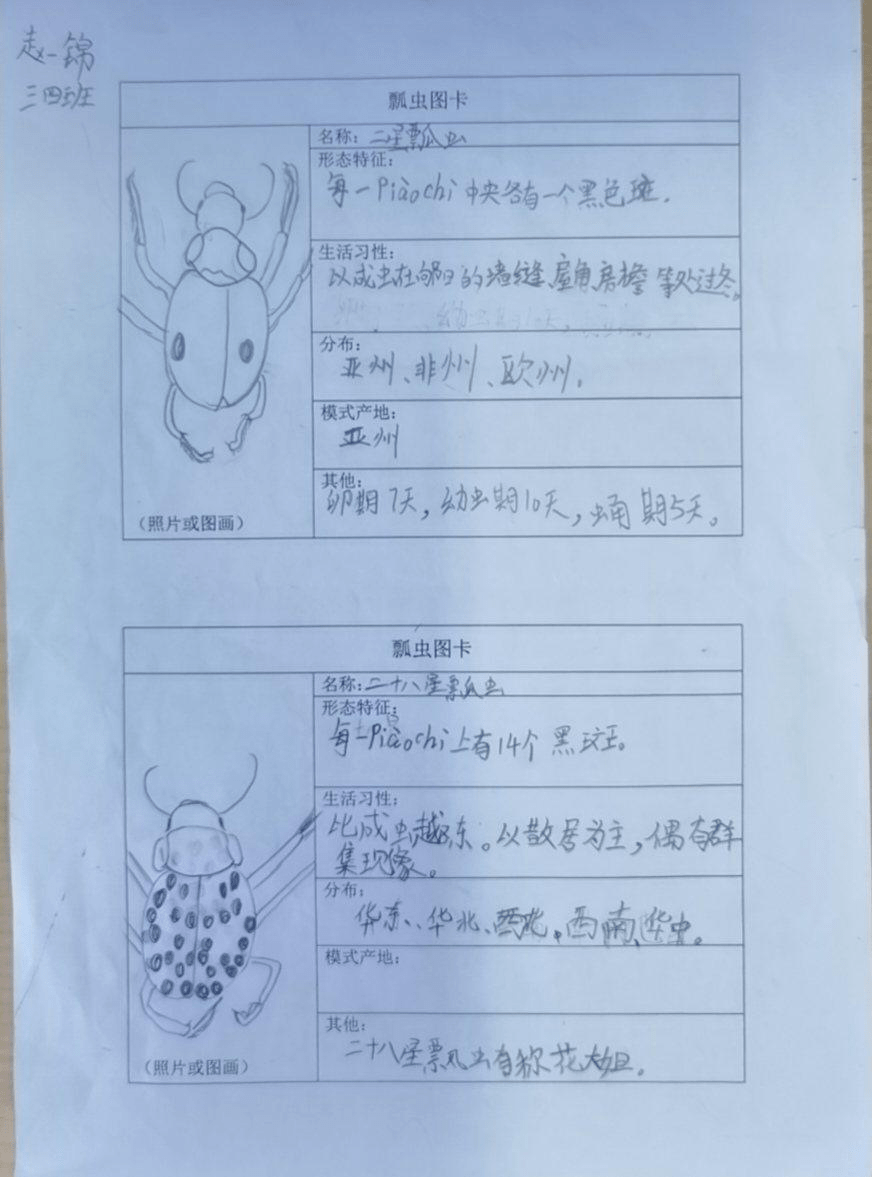 赵一锦
三四班
瓢虫图卡
名称：二星瓢虫
形态特征：
每一Piàochi中央各有一个黑色斑.
生活习性：
以成虫在向阳的墙缝、屋角、房檐等处过冬。
分布：
亚州、非州、欧州.
模式产地：
亚州
其他：
卵期7天，幼虫期10天，蛹期5天。
（照片或图画）
瓢虫图卡
名称：二十八星瓢虫
形态特征：
每一Piàochi上有14个黑斑。
生活习性：
比成虫越冬。以散居为主，偶有群
集现像。
分布：
华东、华北、西北、西南、华中。
模式产地：
其他：
二十八星瓢虫有称花大姐。
（照片或图画）